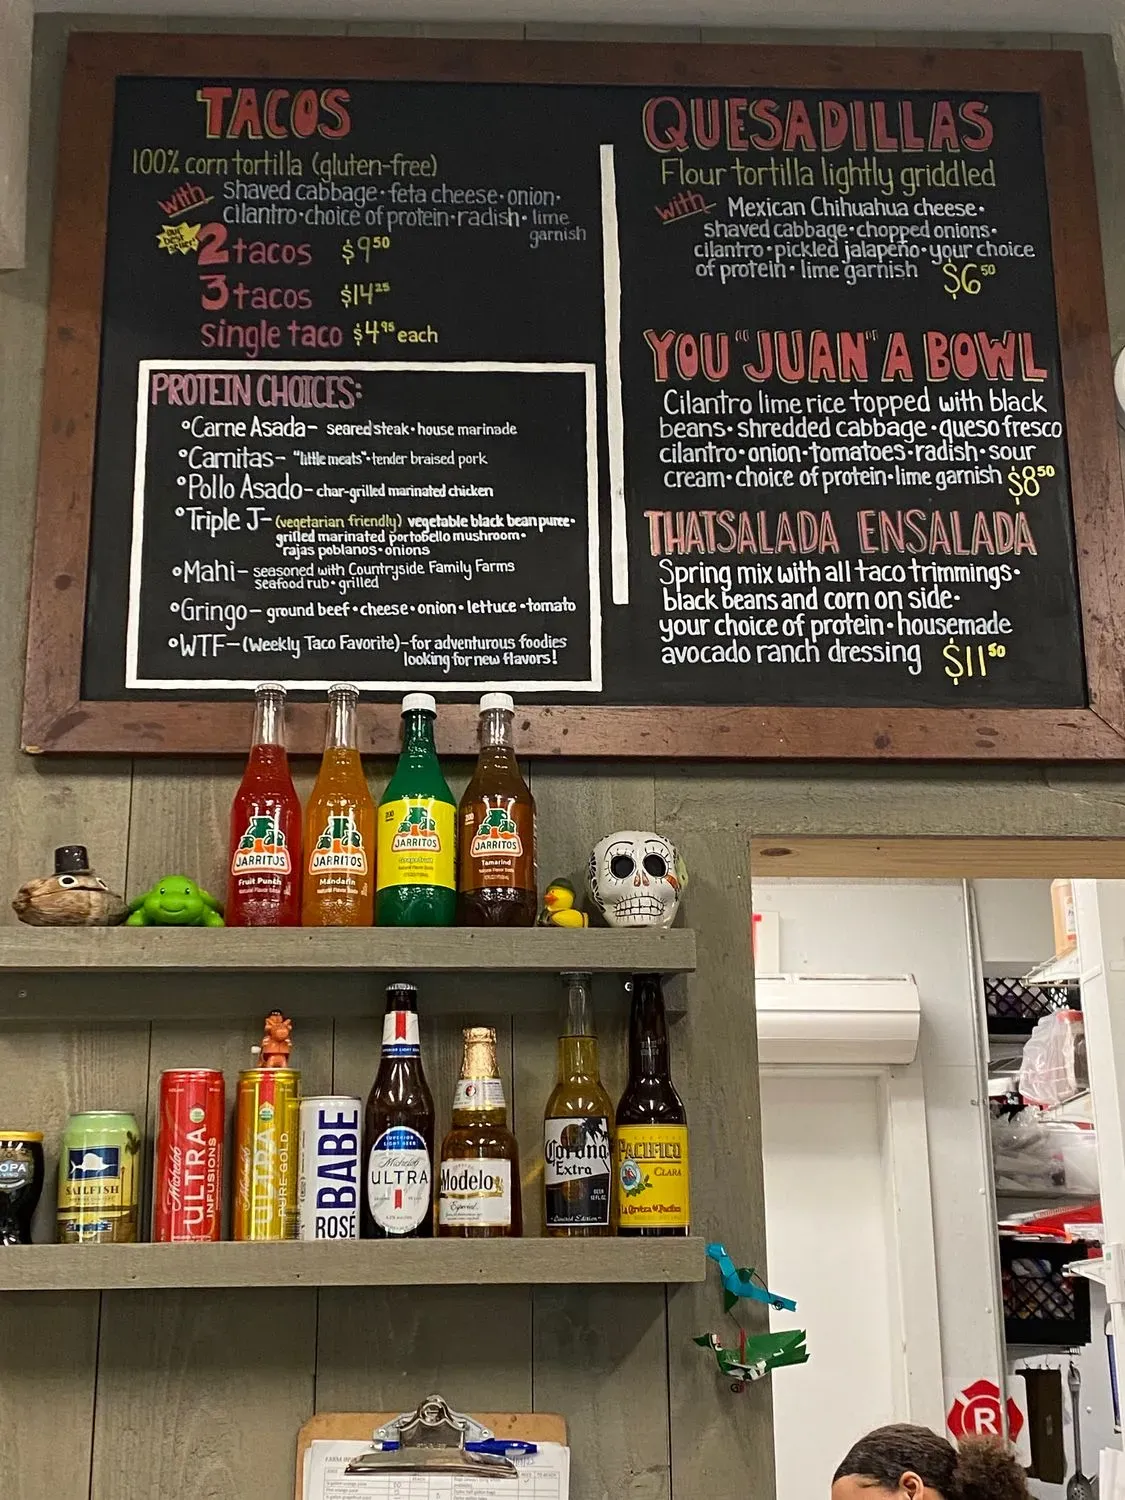 TACOS
100% corn tortilla (gluten-free)
with shaved cabbage • feta cheese • onion •
cilantro • choice of protein • radish • lime
garnish
our best seller! 2 tacos $9.50
3 tacos $14.25
single taco $4.95 each
PROTEIN CHOICES:
° Carne Asada – seared steak • house marinade
° Carnitas – "little meats" • tender braised pork
° Pollo Asado – char-grilled marinated chicken
° Triple J – (vegetarian friendly) vegetable black bean puree •
grilled marinated portobello mushroom •
rajas poblanos • onions
° Mahi – seasoned with Countryside Family Farms
seafood rub • grilled
° Gringo – ground beef • cheese • onion • lettuce • tomato
° WTF – (Weekly Taco Favorite) – for adventurous foodies
looking for new flavors!
QUESADILLAS
Flour tortilla lightly griddled
with Mexican Chihuahua cheese •
shaved cabbage • chopped onions •
cilantro • pickled jalapeño • your choice
of protein • lime garnish $6.50
YOU "JUAN" A BOWL
Cilantro lime rice topped with black
beans • shredded cabbage • queso fresco
cilantro • onion • tomatoes • radish • sour
cream • choice of protein • lime garnish $8.50
THATSALADA ENSALADA
Spring mix with all taco trimmings •
black beans and corn on side •
your choice of protein • housemade
avocado ranch dressing $11.50
JARRITOS
Fruit Punch
JARRITOS
Mandarin
JARRITOS
Grapefruit
JARRITOS
Tamarind
OPA
SAILFISH
Michelob
ULTRA
INFUSIONS
ULTRA
PURE GOLD
BABE
ROSÉ
SUPERIOR
LIGHT BEER
Michelob
ULTRA
Modelo
Especial
Corona
Extra
Limited Edition
PACIFICO
CLARA
R